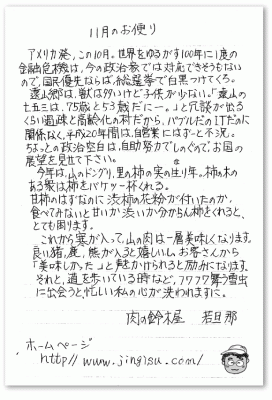 11月のお便り
アメリカ発、この10月。世界をゆるがす100年に1度の
金融危機は、今の政治家では対応できそうもない
ので、国民優先ならば、総選挙で白黒つけてくろ。
遠山郷は、獣は多いけど子供が少ない。「遠山の
七五三は、75歳と53歳だにー。」と冗談が出る
くらい過疎と高齢化の村だから、バブルだのITだのに
関係なく、平成20年間は、自営業にはずーと不況。
ちょっとの政治空白は、自助努力でしのぐので、お国の
展望を見せて下さい。
今年は、山のドングリ、里の柿の実の生り年。柿の木の
ある家は柿をバケツ一杯くれる。
甘柿のはずなのに渋柿の花粉が付いたのか、
食べてみないと甘いか渋いか分からん柿をくれると、
とても困ります。
これから寒が入って、山の肉は一層美味しくなります。
良い猪、鹿、熊が入ると嬉しいし、お客さんから
「美味しかった」と声をかけられると励みになります。
それと、道を歩いている時など、フワフワ舞う雪虫
に出会うと、忙しい私の心が洗われますに。
肉の鈴木屋 若旦那
ホームページ
http//www.jingisu.com/